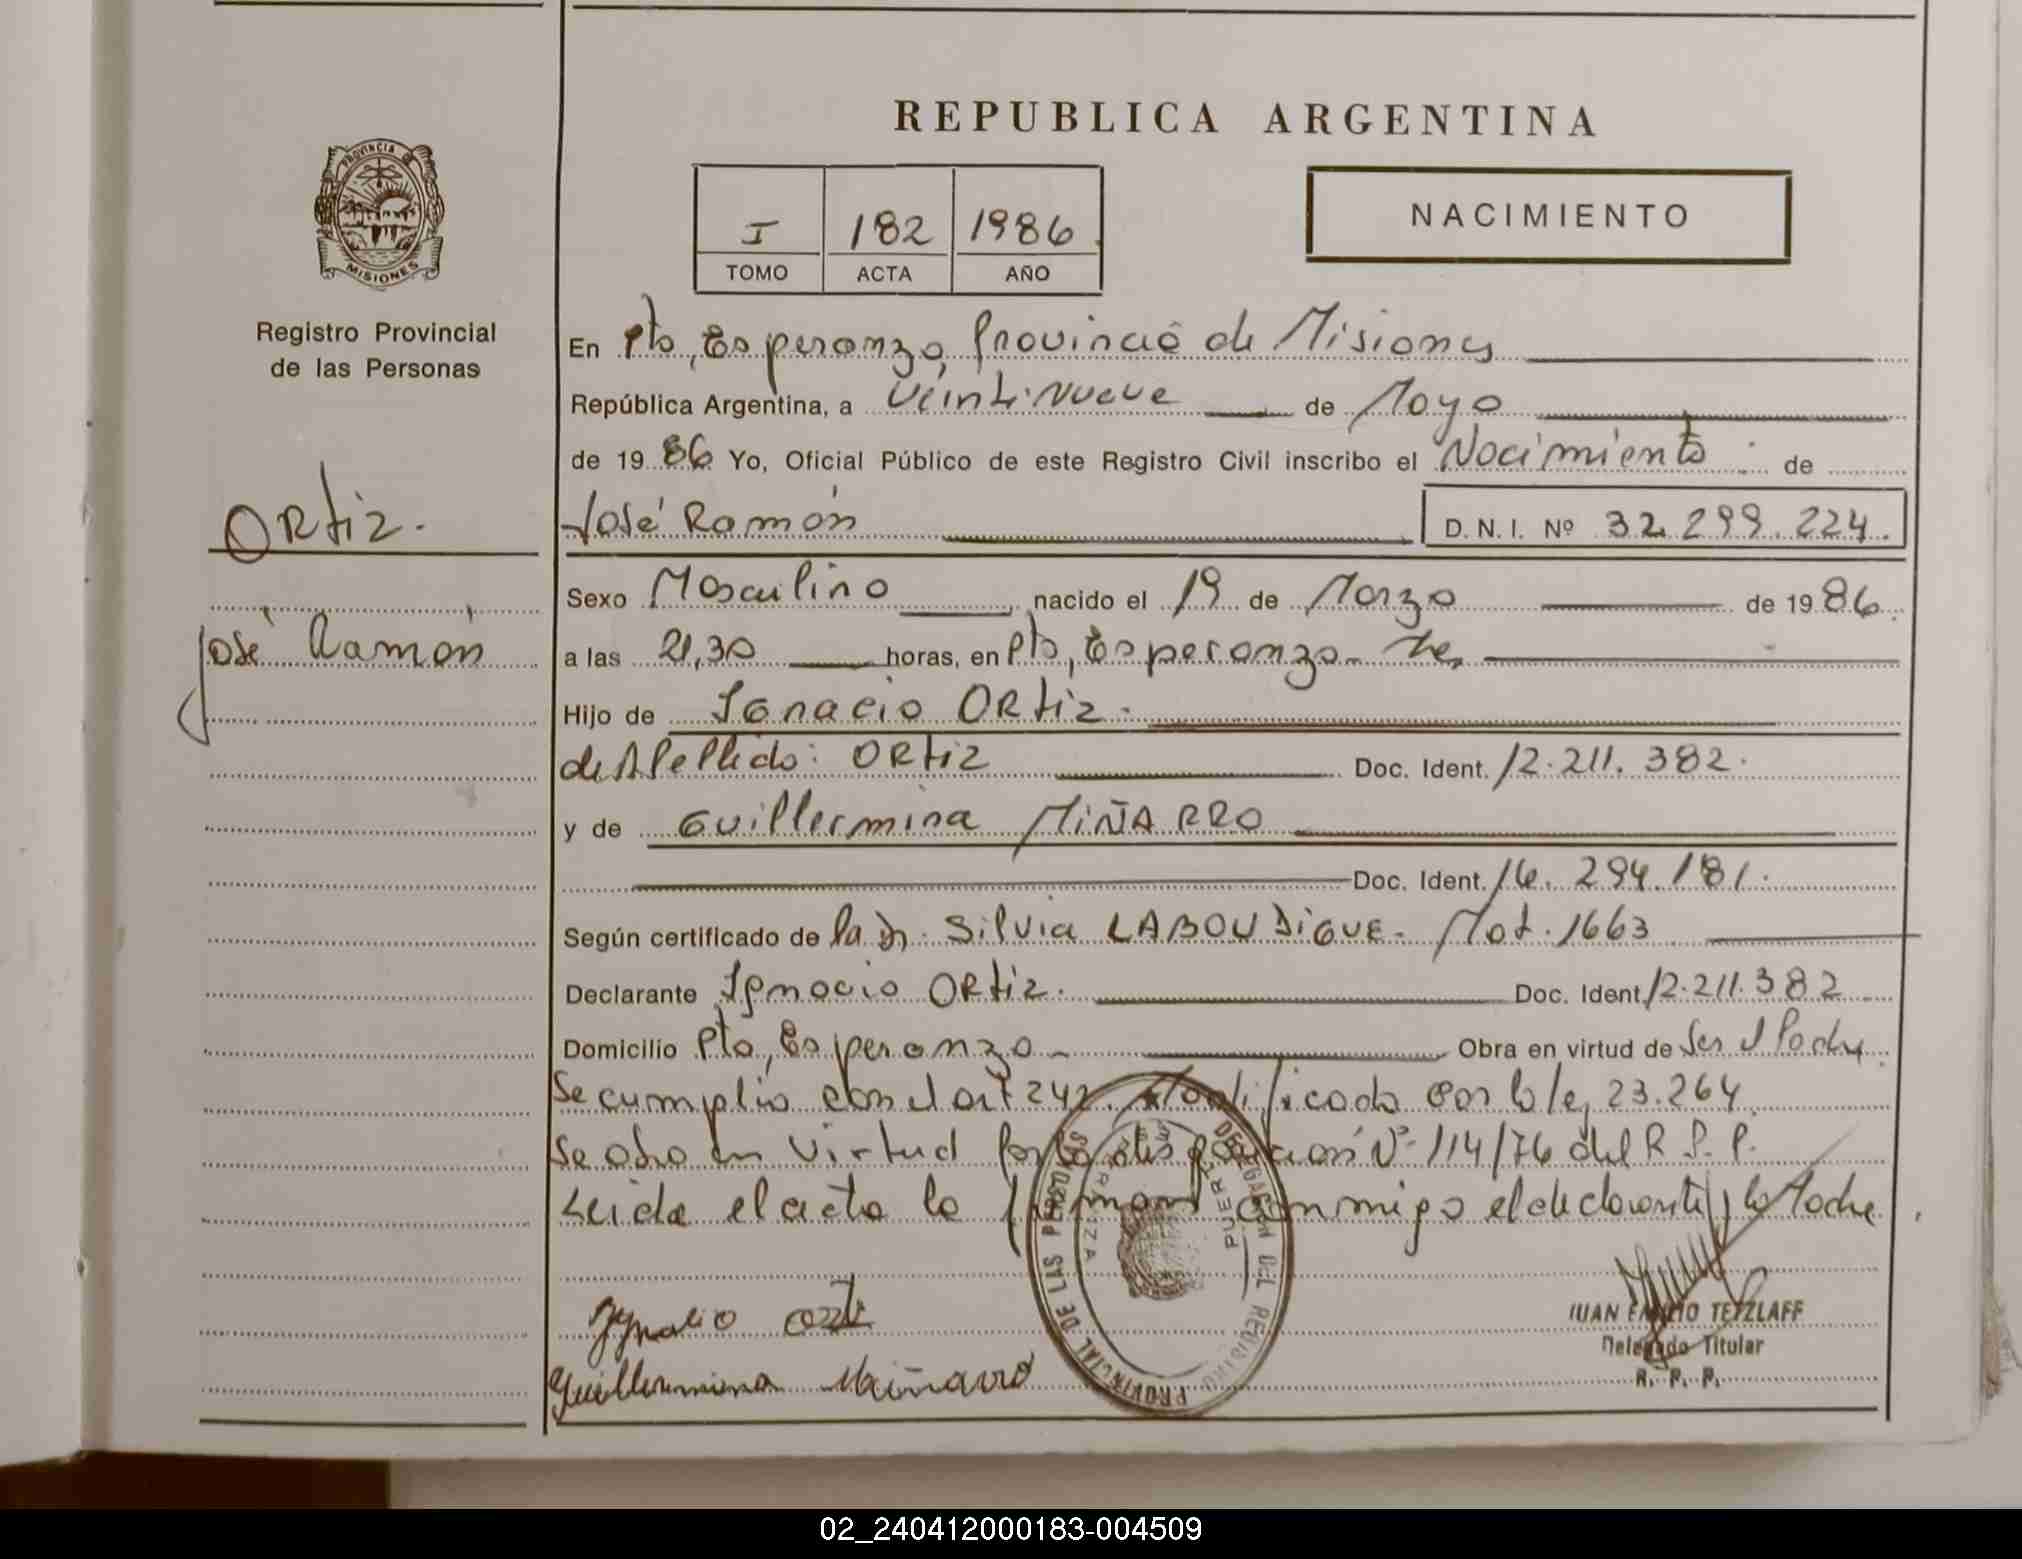 REPUBLICA ARGENTINA
PROVINCIA DE
MISIONES
Registro Provincial
de las Personas
I 182 1986
TOMO ACTA AÑO
NACIMIENTO
En Pto, Esperanza, Provincia de Misiones
República Argentina, a Veintinueve de Mayo
de 1986 Yo, Oficial Público de este Registro Civil inscribo el Nacimiento de
ORtiz.
José Ramón D. N. I. Nº 32.299.224.
Sexo Masculino nacido el 19 de Marzo de 1986.
José Ramón
a las 21,30 horas, en Pto, Esperanza
Hijo de Ignacio ORtiz.
de Apellido: ORtiz Doc. Ident. 12.211.382.
y de Guillermina MIÑARRO
Doc. Ident. 16.294.181.
Según certificado de la Dr. Silvia LABOUDIGUE. Mat. 1663
Declarante Ignacio ORtiz. Doc. Ident. 12.211.382
Domicilio Pto, Esperanza Obra en virtud de Ser el Padre
Se cumplio con el art 242. Modificado por la ley 23.264
Se obro en Virtud por la disposición Nº 114/76 del R.P.P.
Leida el acta la firman conmigo el declarante y la Madre.
DELEGACION DEL REGISTRO PROVINCIAL DE LAS PERSONAS
PUERTO
Ignacio Ortiz
Guillermina Miñarro
JUAN EMILIO TETZLAFF
Delegado Titular
R. P. P.
02_240412000183-004509